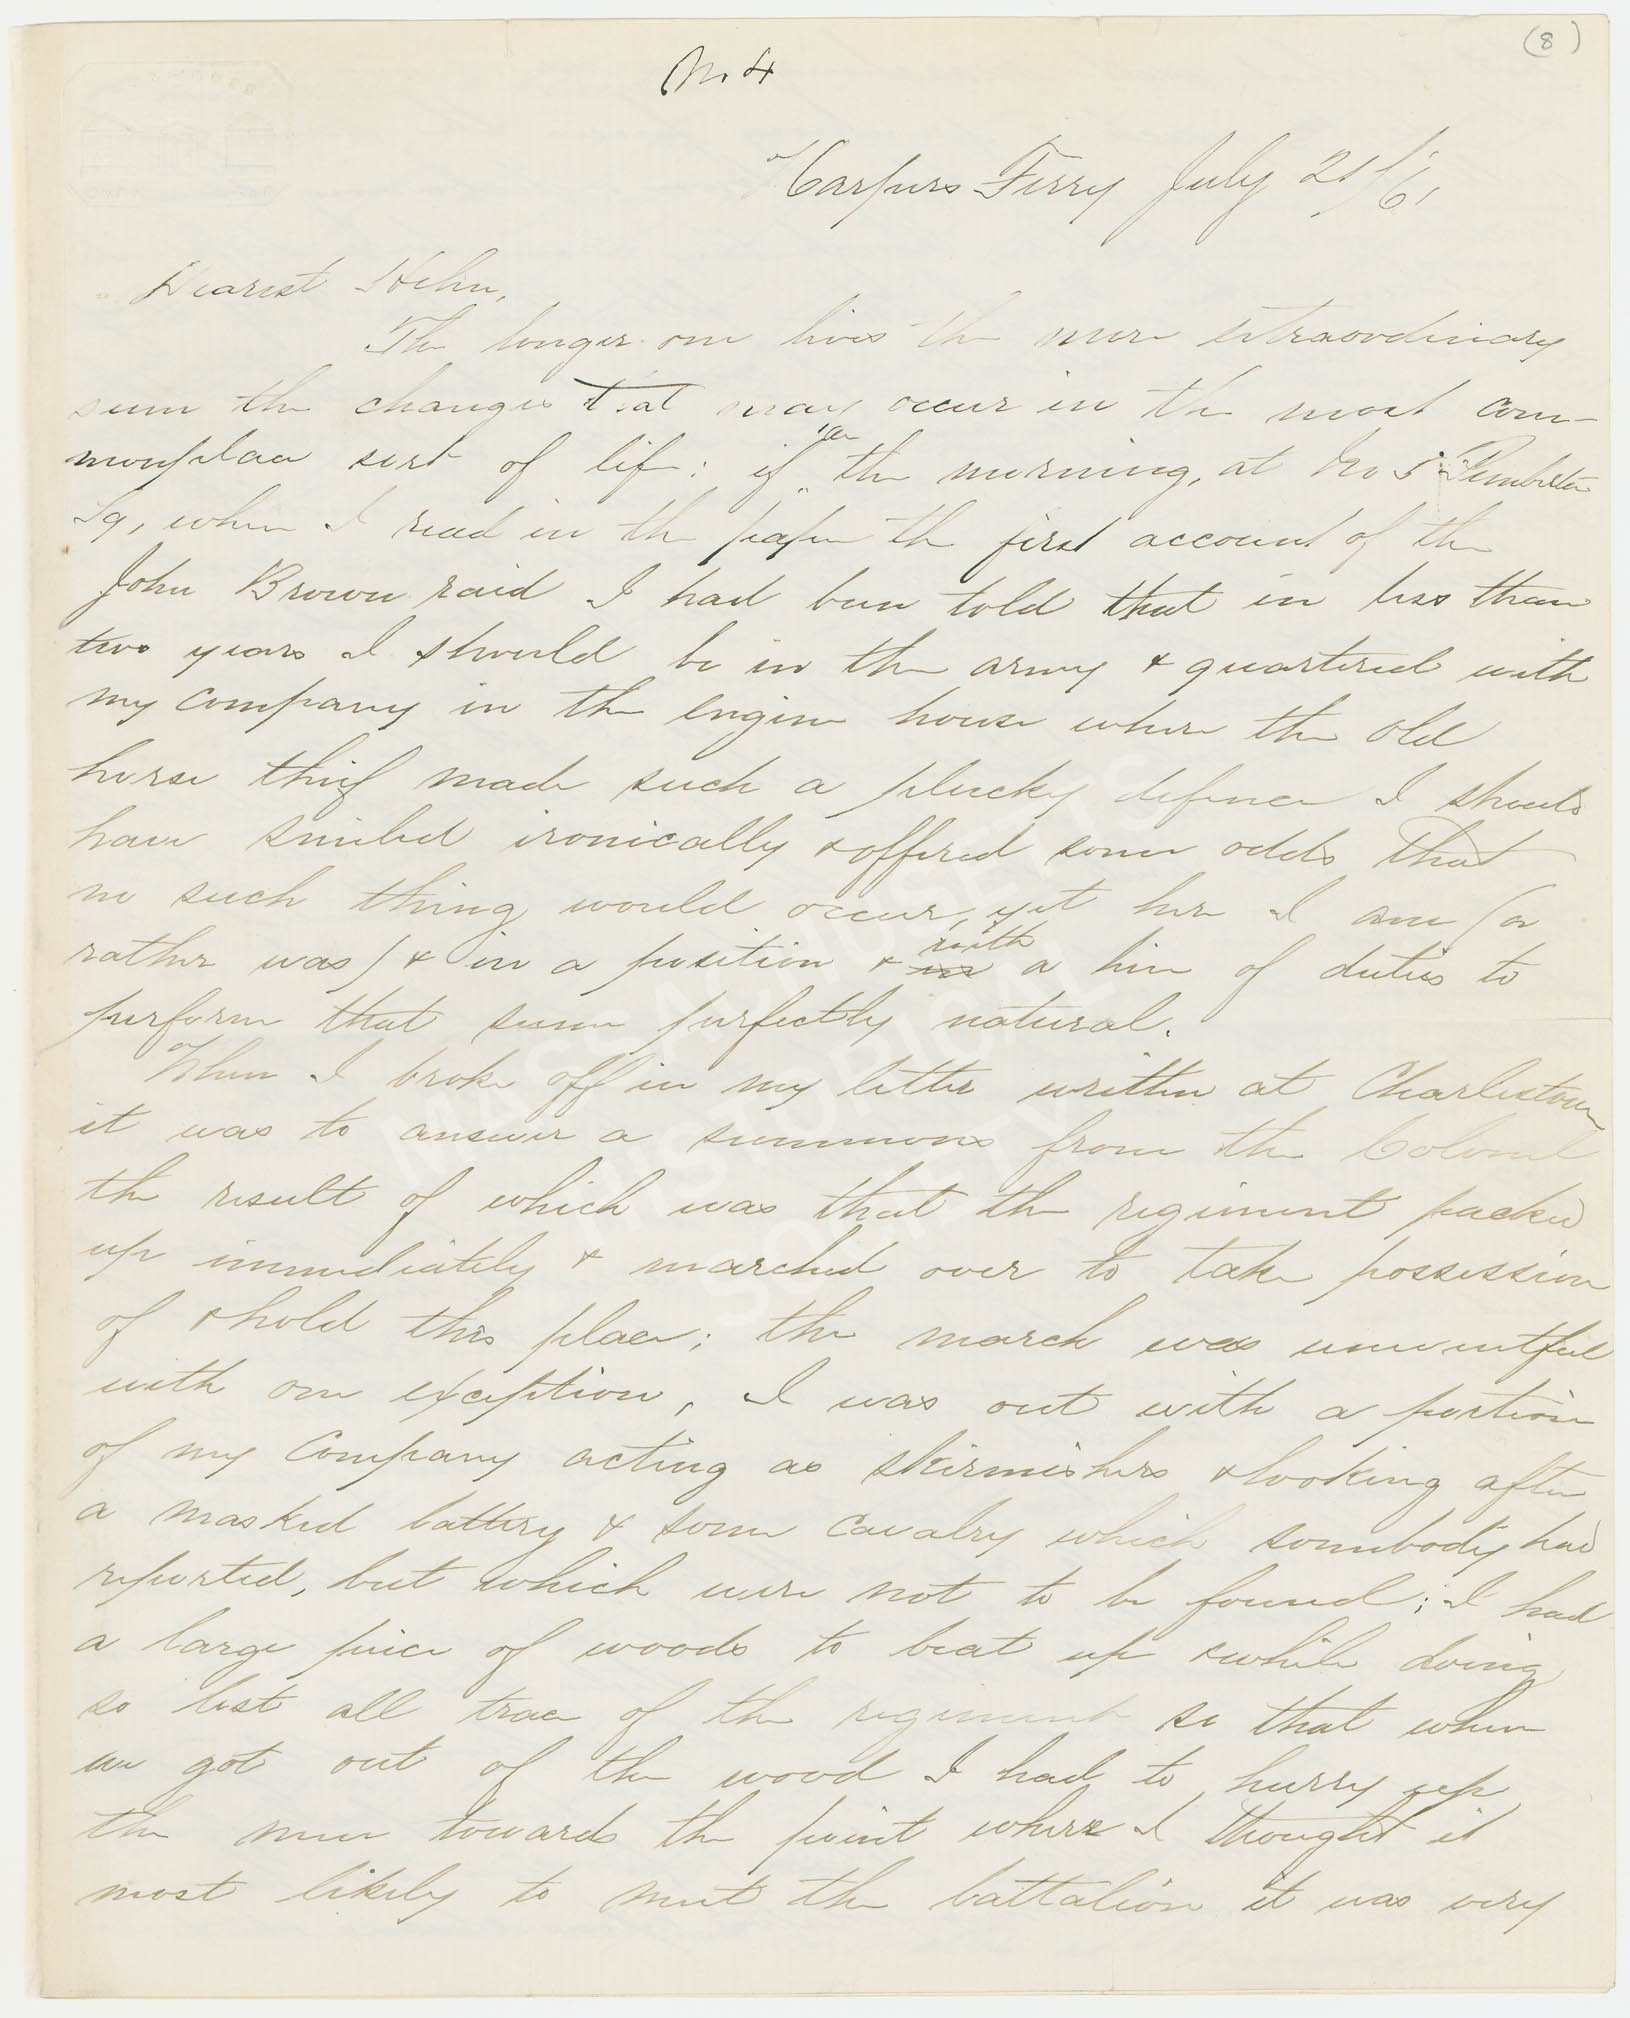 (8)
No. 4
Harpers Ferry July 21st/61
Dearest Helen,
The longer one lives the more extraordinary
seem the changes that may occur in the most com-
monplace sort of life: if on the morning, at No 5 Pemberton
Sq, when I read in the paper the first account of the
John Brown raid I had been told that in less than
two years I should be in the army & quartered with
my company in the engine house where the old
horse thief made such a plucky defence I should
have smiled ironically & offered some odds that
no such thing would occur, yet here I am (or
rather was) & in a position & in with a line of duties to
perform that seem perfectly natural.
When I broke off in my letter written at Charlestown
it was to answer a summons from the Colonel
the result of which was that the regiment packed
up immediately & marched over to take possession
of & hold this place; the march was uneventful
with one exception, I was out with a portion
of my Company acting as skirmishers & looking after
a masked battery & some cavalry which somebody had
reported, but which were not to be found; I had
a large piece of woods to beat up & while doing
so lost all trace of the regiment so that when
we got out of the wood I had to hurry up
the men towards the point where I thought it
most likely to meet the battalion it was very
MASSACHUSETTS
HISTORICAL
SOCIETY